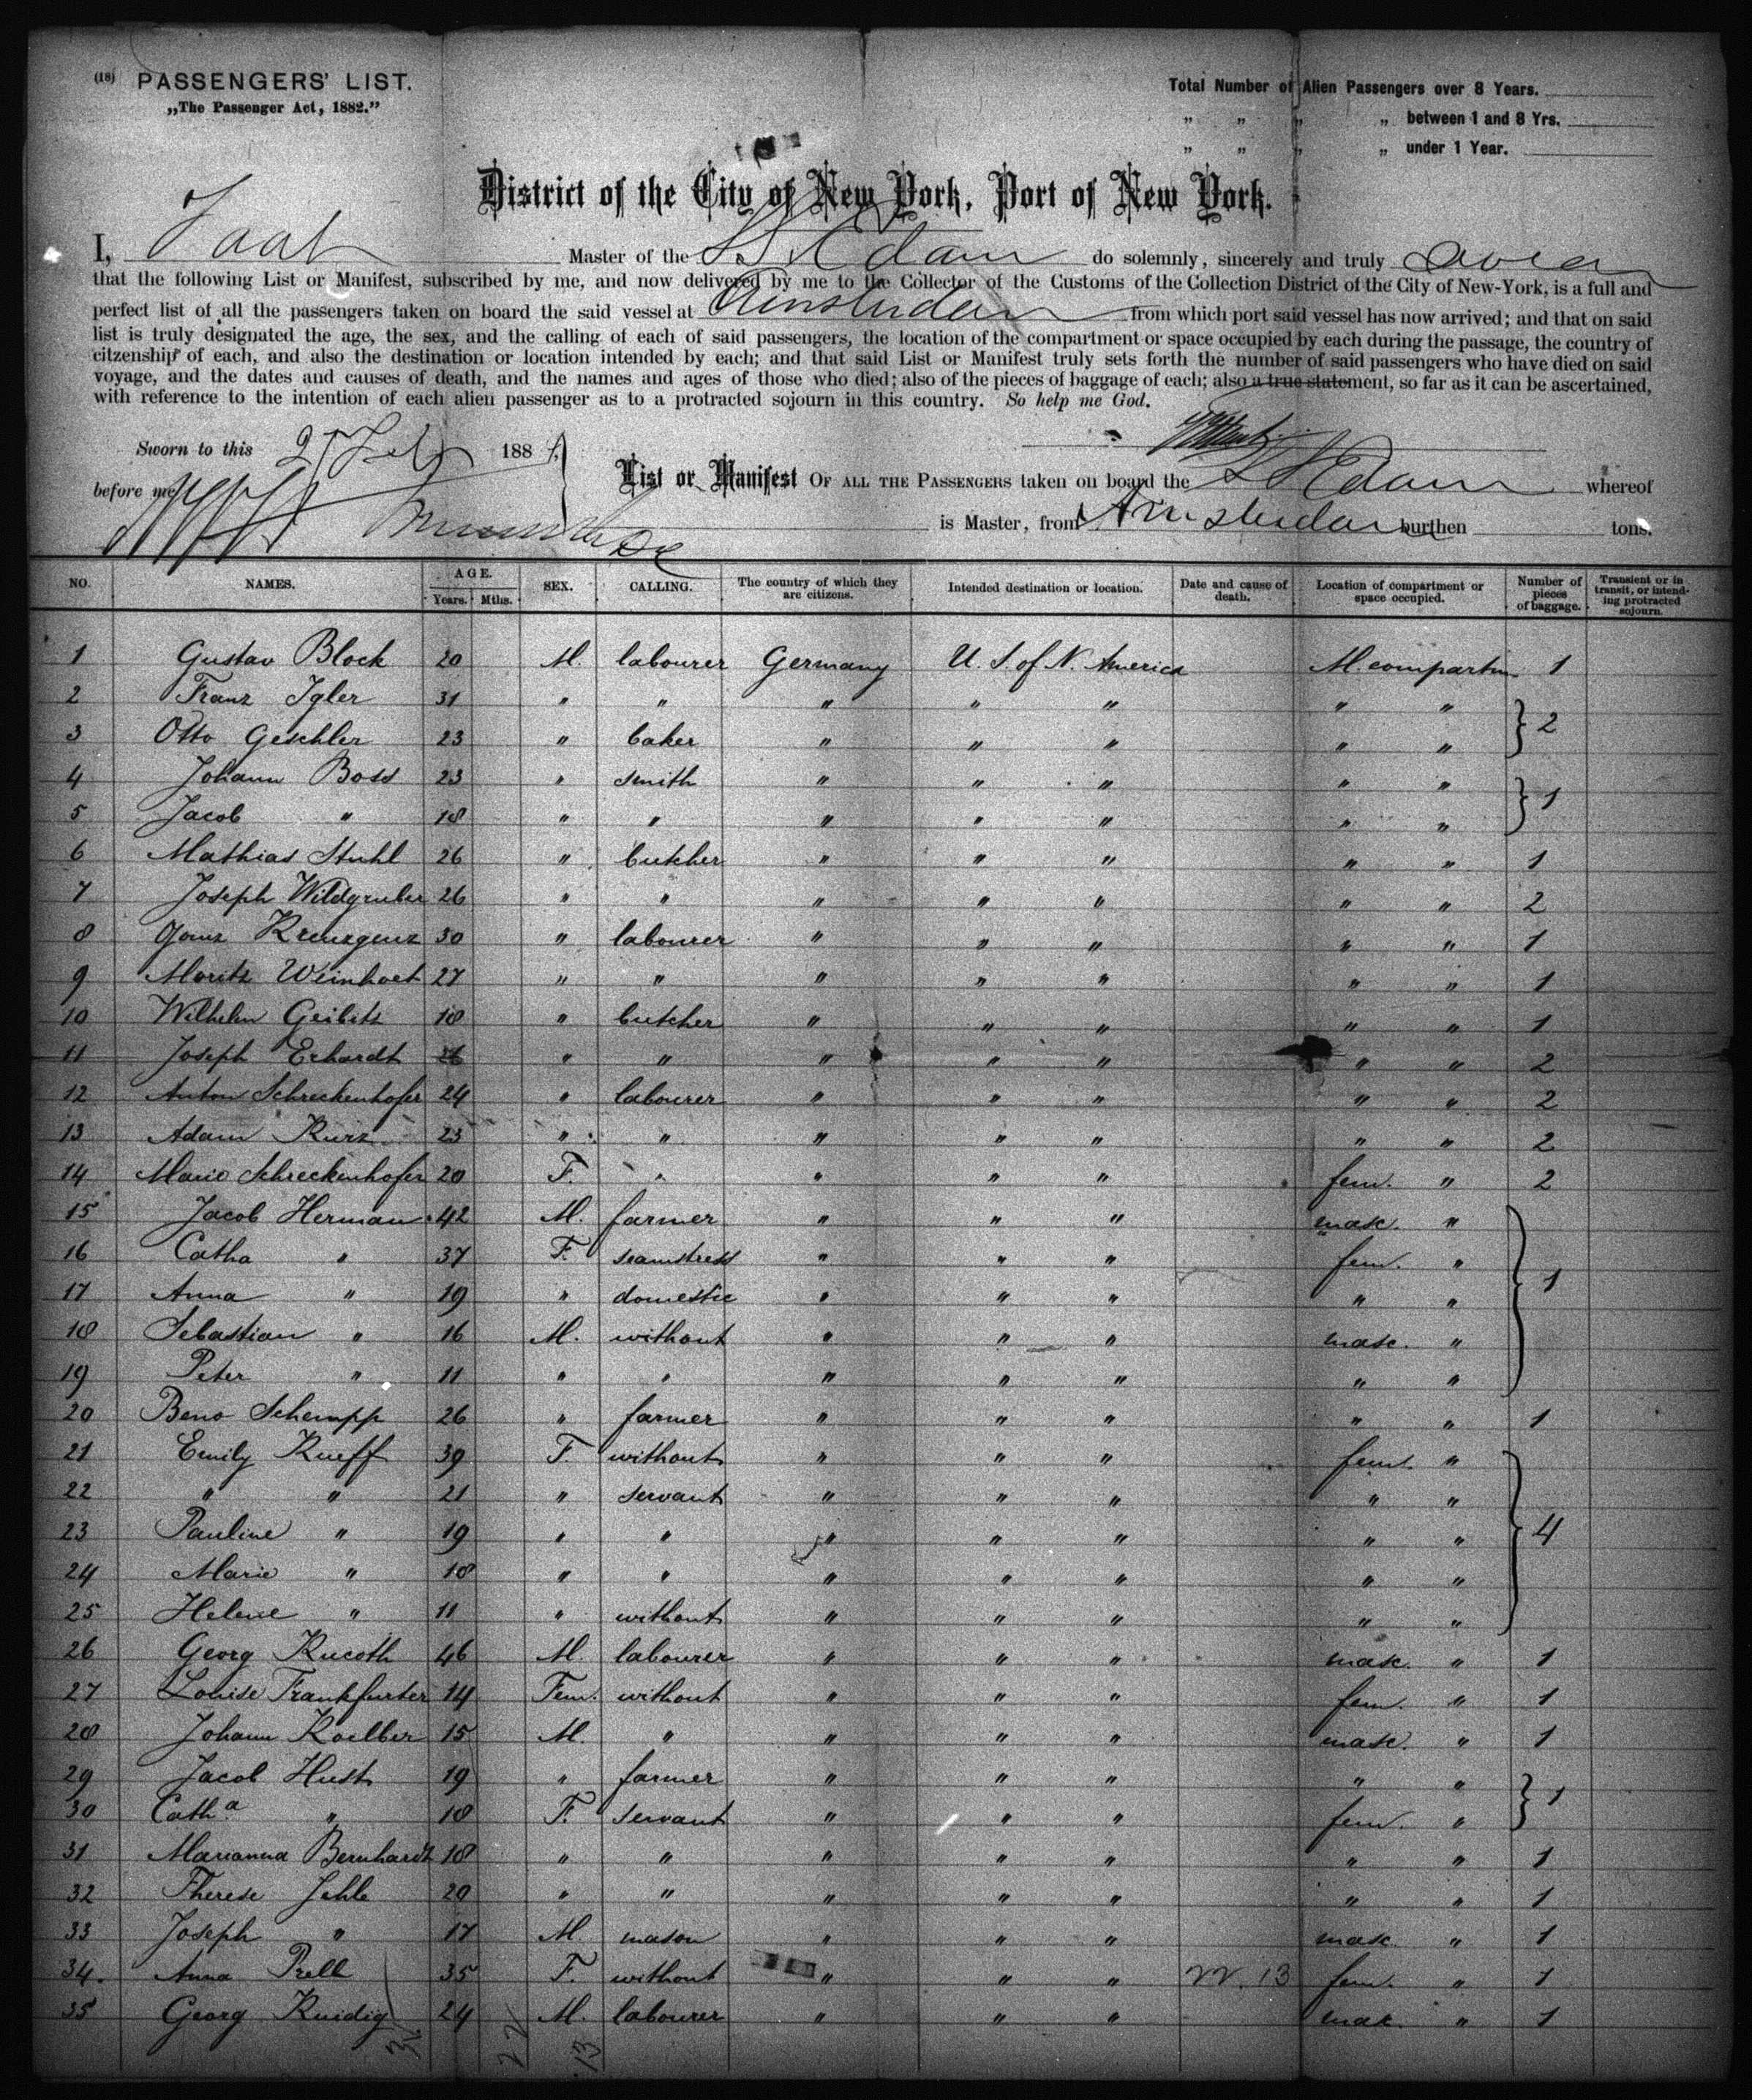 (18) PASSENGERS' LIST.
„The Passenger Act, 1882."
Total Number of Alien Passengers over 8 Years.
„ „ „ „ between 1 and 8 Yrs.
„ „ „ „ under 1 Year.
District of the City of New York, Port of New York.
I, Taat Master of the S.S. Edam do solemnly, sincerely and truly swear
that the following List or Manifest, subscribed by me, and now delivered by me to the Collector of the Customs of the Collection District of the City of New-York, is a full and
perfect list of all the passengers taken on board the said vessel at Amsterdam from which port said vessel has now arrived; and that on said
list is truly designated the age, the sex, and the calling of each of said passengers, the location of the compartment or space occupied by each during the passage, the country of
citzenship of each, and also the destination or location intended by each; and that said List or Manifest truly sets forth the number of said passengers who have died on said
voyage, and the dates and causes of death, and the names and ages of those who died; also of the pieces of baggage of each; also a true statement, so far as it can be ascertained,
with reference to the intention of each alien passenger as to a protracted sojourn in this country. So help me God.
Sworn to this 188
before me
List or Manifest OF ALL THE PASSENGERS taken on board the SS Edam whereof
is Master, from Amsterdam burthen tons.
NO. NAMES. AGE. Years. Mths. SEX. CALLING. The country of which they are citizens. Intended destination or location. Date and cause of death. Location of compartment or space occupied. Number of pieces of baggage. Transient or in transit, or intending protracted sojourn.
1 Gustav Block 20 M. labourer Germany U. S. of N. America M. compartm 1
2 Franz Igler 31 " " " " " " "
3 Otto Geschler 23 " baker " " " " " } 2
4 Johann Boss 23 " smith " " " " "
5 Jacob " 18 " " " " " " " } 1
6 Mathias Stuhl 26 " butcher " " " " " 1
7 Joseph Wildgruber 26 " " " " " " " 2
8 Kreuzgenz 30 " labourer " " " " " 1
9 Moritz 27 " " " " " " " 1
10 Wilhelm Geibitz 18 " butcher " " " " " 1
11 Joseph Erhardt " " " " " " " 2
12 Anton Schreckenhofer 24 " labourer " " " " " 2
13 Adam Kurz 23 " " " " " " " 2
14 Marie Schreckenhofer 20 F. " " " " fem. " 2
15 Jacob Herman 42 M. farmer " " " masc. "
16 Catha " 37 F. seamstress " " " fem. "
17 Anna " 19 " domestic " " " " " } 1
18 Sebastian " 16 M. without " " " masc. "
19 Peter " 11 " " " " " " "
20 Beno Schempp 26 " farmer " " " " " 1
21 Emily Rueff 39 F. without " " " fem. "
22 " " 21 " servant " " " " "
23 Pauline " 19 " " " " " " " } 4
24 Marie " 18 " " " " " " "
25 Helene " 11 " without " " " " "
26 Georg Kucoth 46 M. labourer " " " masc. " 1
27 Louise Frankfurter 14 Fem. without " " " fem. " 1
28 Johann Koelber 15 M. " " " " masc. " 1
29 Jacob Hust 19 " farmer " " " " "
30 Cath.a " 18 F. servant " " " fem. " } 1
31 Marianna Bernhardt 18 " " " " " " " 1
32 Therese Jehle 20 " " " " " " " 1
33 Joseph " 17 M. mason " " " masc. " 1
34. Anna Prell 35 F. without " " " 22. 13 fem. " 1
35 Georg Ruidig 24 M. labourer " " " masc. " 1
22 13